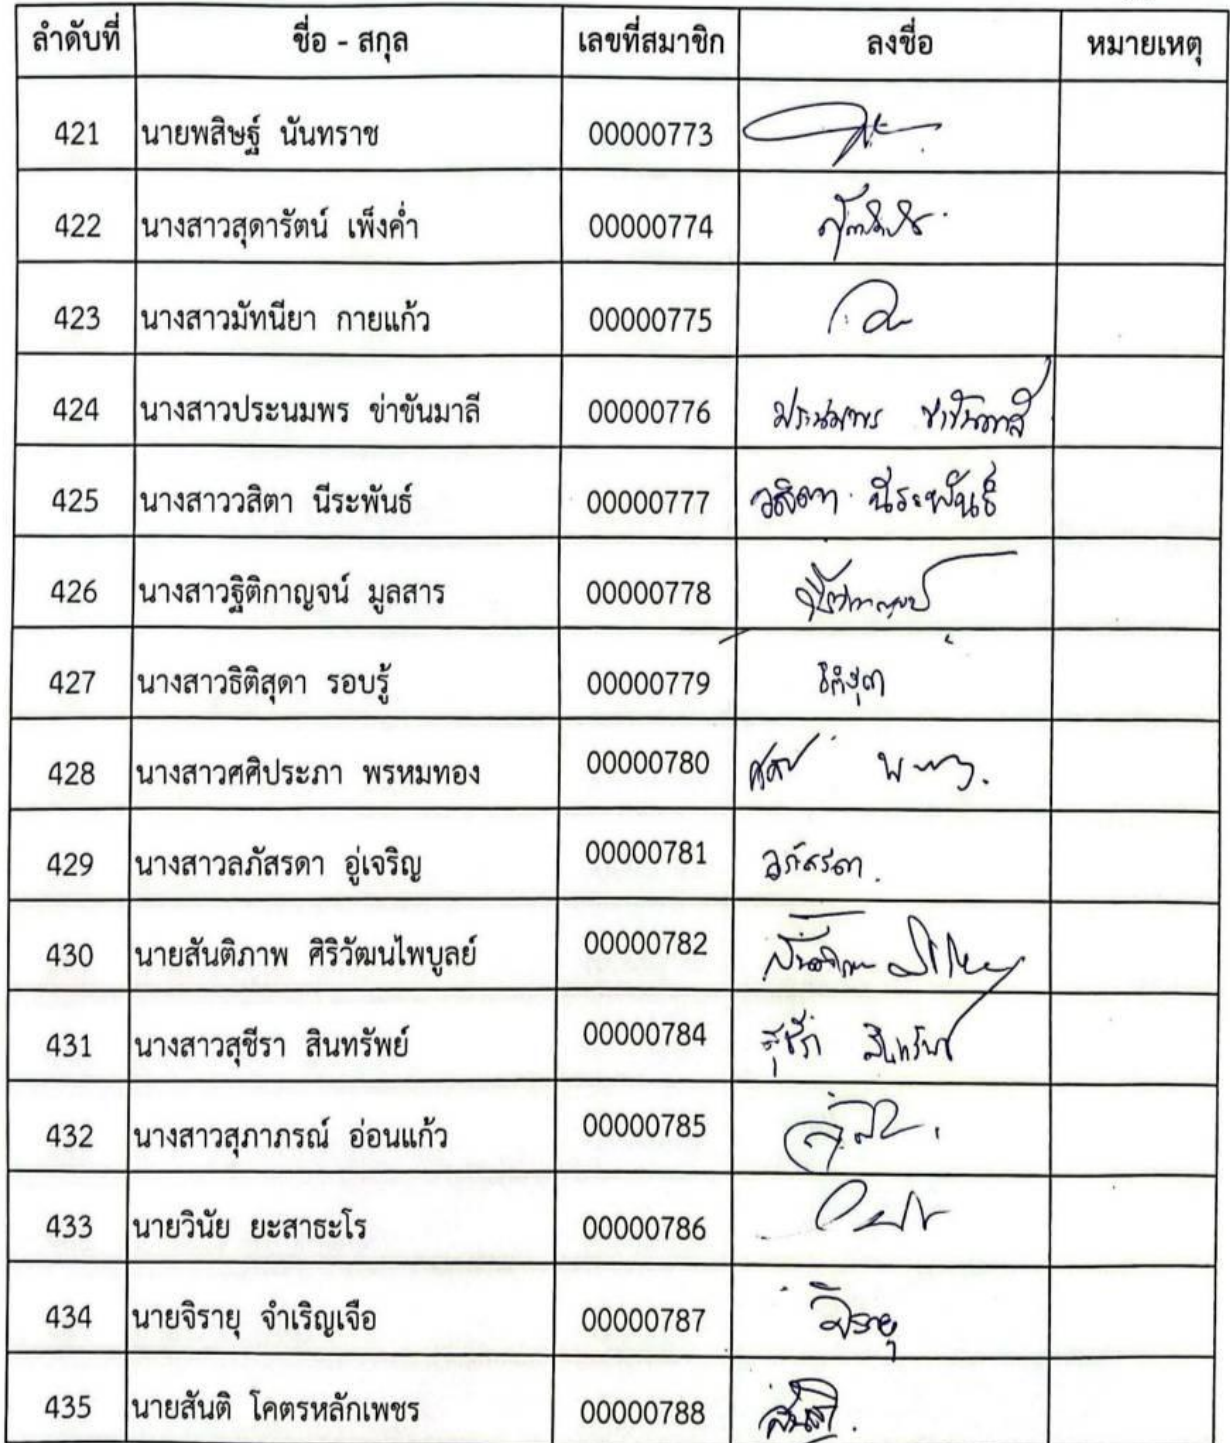 ลำดับที่ ชื่อ - สกุล เลขที่สมาชิก ลงชื่อ หมายเหตุ
421 นายพสิษฐ์ นันทราช 00000773
422 นางสาวสุดารัตน์ เพ็งค่ำ 00000774
423 นางสาวมัทนียา กายแก้ว 00000775
424 นางสาวประนมพร ข่าขันมาลี 00000776 ประนมพร ข่าขันมาลี
425 นางสาววสิตา นีระพันธ์ 00000777 วสิตา นีระพันธ์
426 นางสาวฐิติกาญจน์ มูลสาร 00000778 ฐิติกาญจน์
427 นางสาวธิติสุดา รอบรู้ 00000779 ธิติสุดา
428 นางสาวศศิประภา พรหมทอง 00000780
429 นางสาวลภัสรดา อู่เจริญ 00000781 ลภัสรดา
430 นายสันติภาพ ศิริวัฒนไพบูลย์ 00000782 สันติภาพ
431 นางสาวสุชีรา สินทรัพย์ 00000784 สุชีรา สินทรัพย์
432 นางสาวสุภาภรณ์ อ่อนแก้ว 00000785
433 นายวินัย ยะสาธะโร 00000786
434 นายจิรายุ จำเริญเจือ 00000787 จิรายุ
435 นายสันติ โคตรหลักเพชร 00000788 สันติ